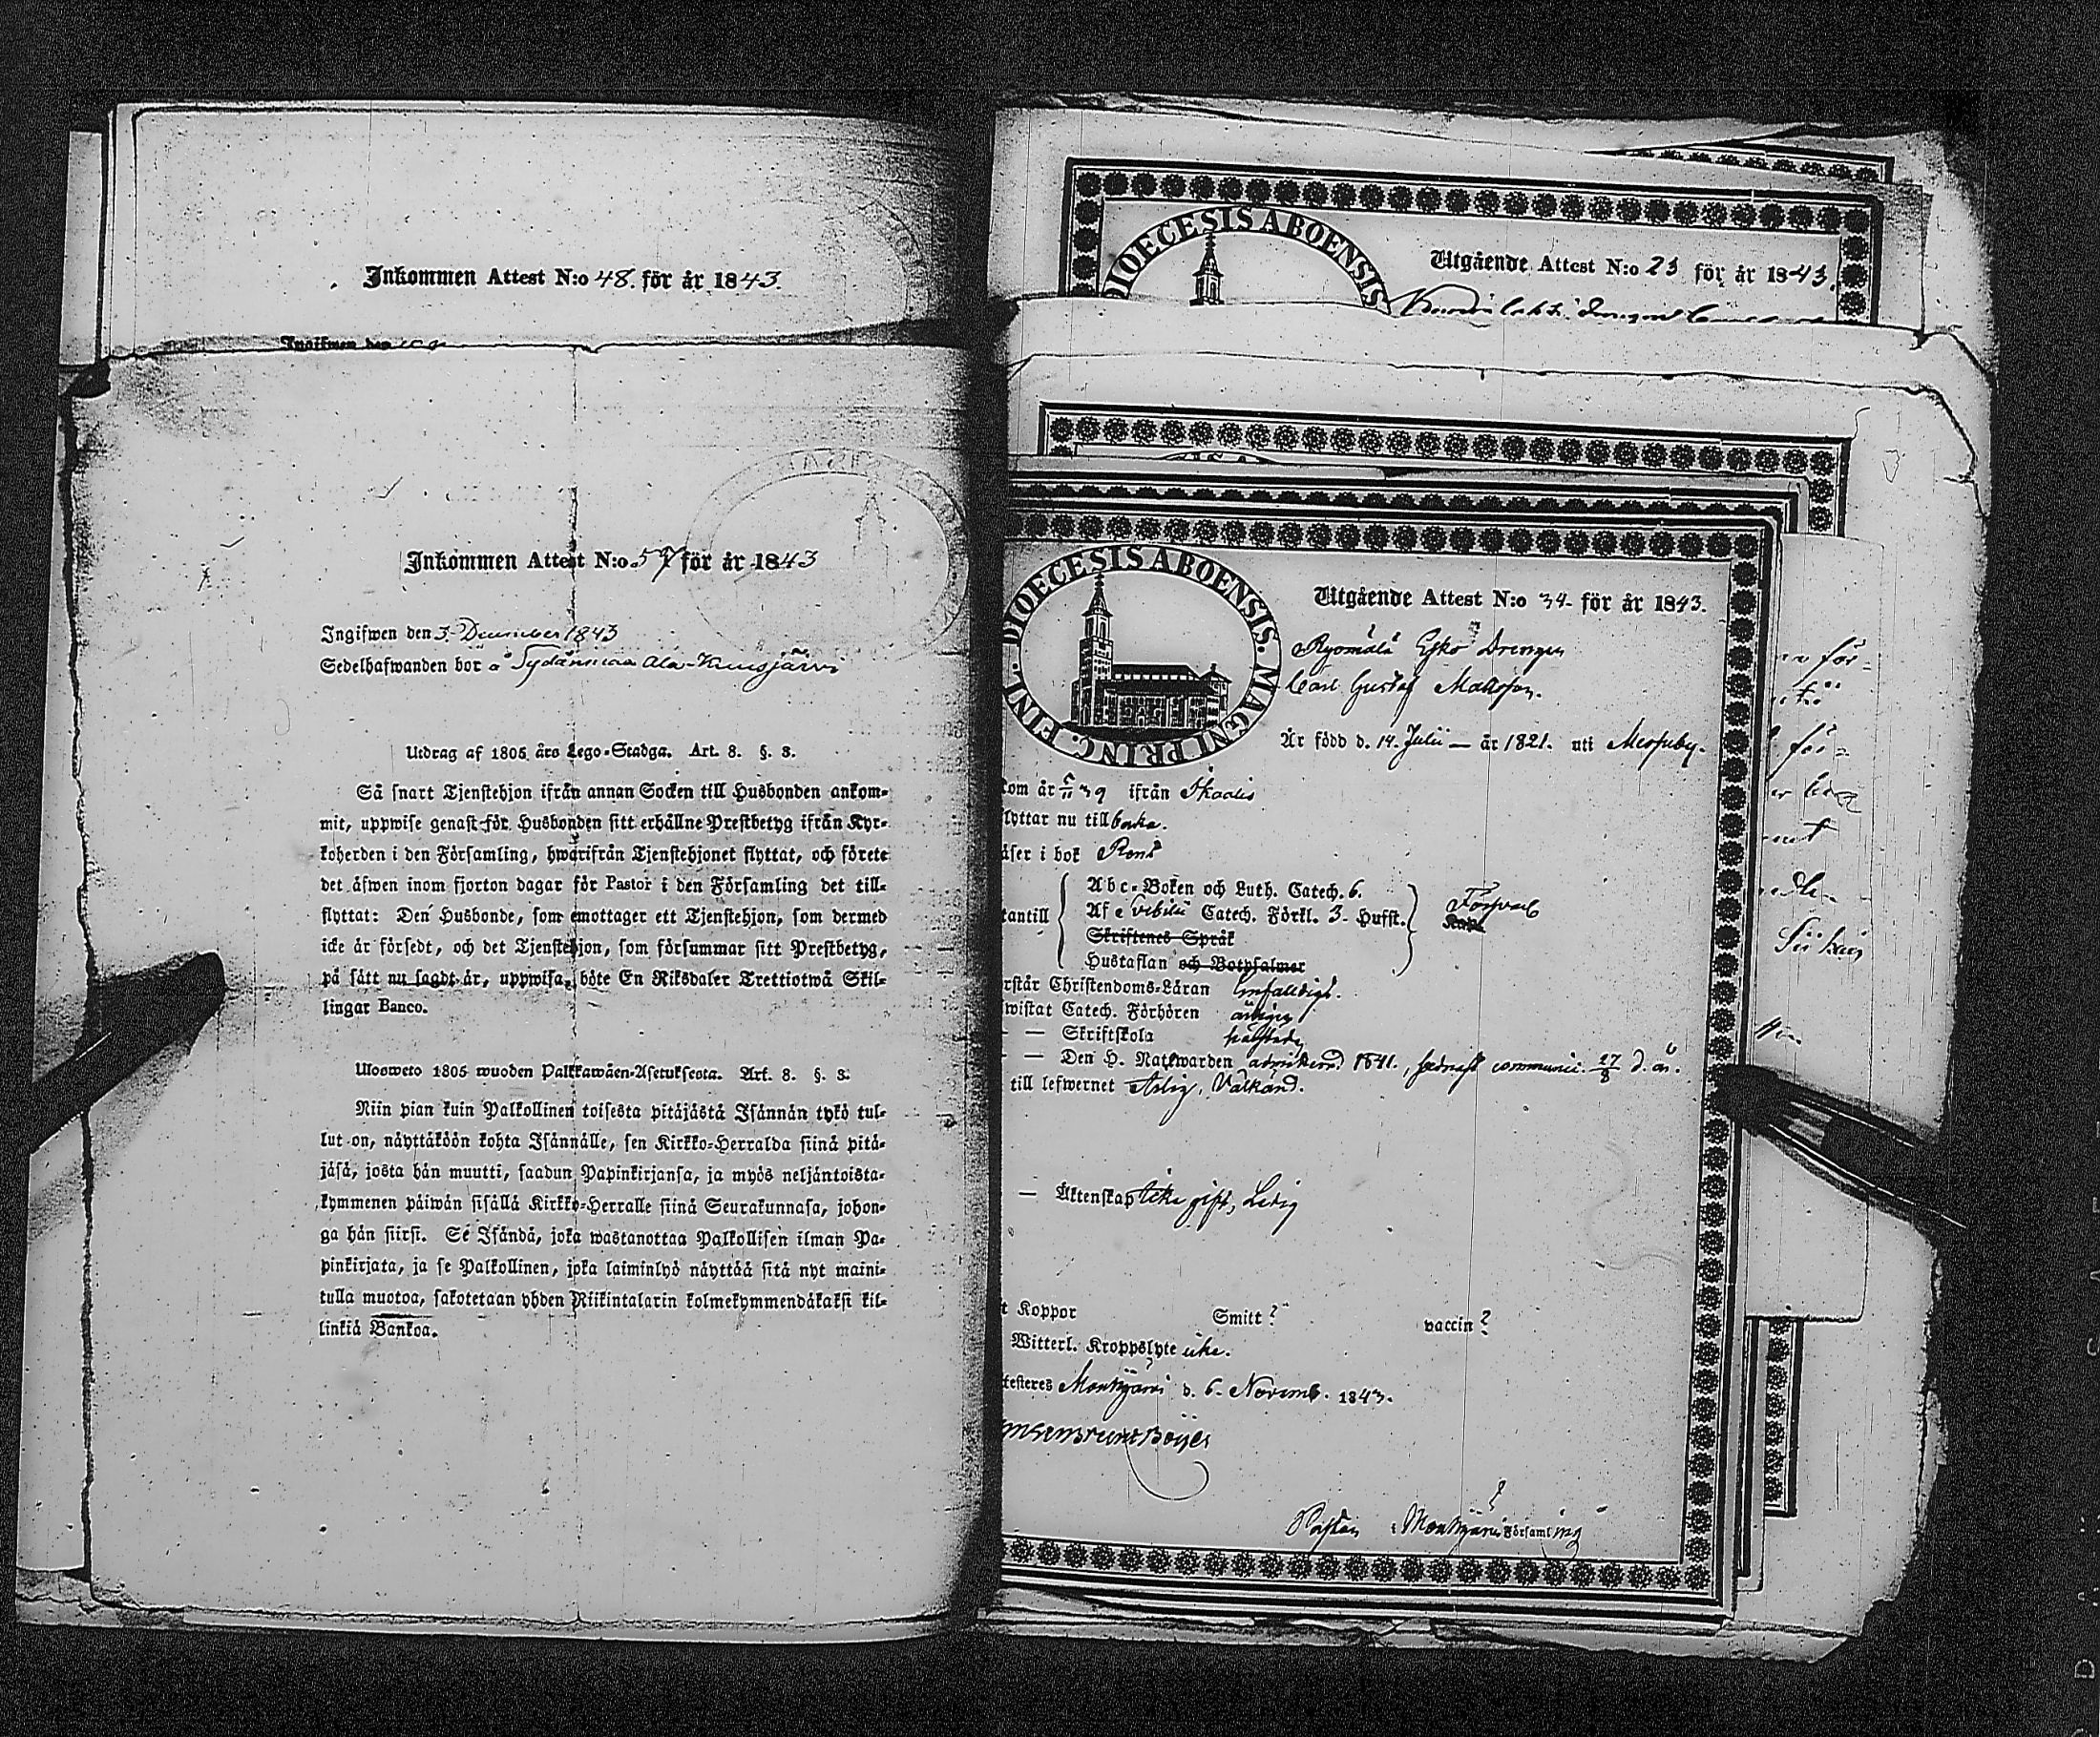 Inkommen Attest N:o 48. för år 1843.
Ingifwen den
Inkommen Attest N:o 57 för år 1843
Ingifwen den 3. December 1843
Sedelhafwanden bor å Sydänmaa Ala-Kuusjärvi
Utdrag af 1805 års Lego-Stadga. Art. 8. §. 8.
Så snart Tjenstehjon ifrån annan Socken till Husbonden ankom-
mit, uppwise genast för Husbonden sitt erhållne Prestbetyg ifrån Kyr-
koherden i den Församling, hwarifrån Tjenstehjonet flyttat, och förete
det äfwen inom fjorton dagar för Pastor i den Församling det till-
flyttat: Den Husbonde, som emottager ett Tjenstehjon, som dermed
icke är försedt, och det Tjenstehjon, som försummar sitt Prestbetyg,
på sätt nu sagdt är, uppwisa, böte En Riksdaler Trettiotwå Skil-
lingar Banco.
Ulosweto 1805 wuoden Palkkawäen-Asetuksesta. Art. 8. §. 8.
Niin pian kuin Palkollinen toisesta pitäjästä Isännän tykö tul-
lut on, näyttäköön kohta Isännälle, sen Kirkko-Herralda siinä pitä-
jäsä, josta hän muutti, saadun Papinkirjansa, ja myös neljäntoista-
kymmenen päiwän sisällä Kirkko-Herralle siinä Seurakunnasa, johon-
ga hän siirsi. Se Isändä, joka wastanottaa Palkollisen ilman Pa-
pinkirjata, ja se Palkollinen, joka laiminlyö näyttää sitä nyt maini-
tulla muotoa, sakotetaan yhden Riikintalarin kolmekymmendäkaksi kil-
linkiä Bankoa.
DIOECESIS ABOENSIS
Utgående Attest N:o 23 för år 1843.
DIOECESIS ABOENSIS. MAGNI PRINC. FINL.
Utgående Attest N:o 34. för år 1843.
Ryömälä Esko Drengen
Carl Gustaf Matsson.
Är född d. 14. Julii — år 1821. uti Merfuby.
kom år 39 ifrån Skodis
flyttar nu tillbaka.
läser i bok Rent
utantill
Abc-Boken och Luth. Catech. 6.
Af Svebilii Catech. Förkl. 3. Hufst.
Skriftenes Språk
Hustaflan och Botpsalmer
Försvarl
rstår Christendoms-Läran Enfaldigt.
wistat Catech. Förhören årligen
— — Skriftskola
— — Den H. Nattwarden admitterad 1841., sednast communic. 27/8 d. å.
till lefwernet Ärlig, Välkänd.
— Äktenskap icke gift, Ledig
t Koppor Smitt? vaccin?
Witterl. Kroppslyte icke.
testeres Mouhijärvi d. 6. Novemb. 1843.
Pastor i Mouhijärvi Församling